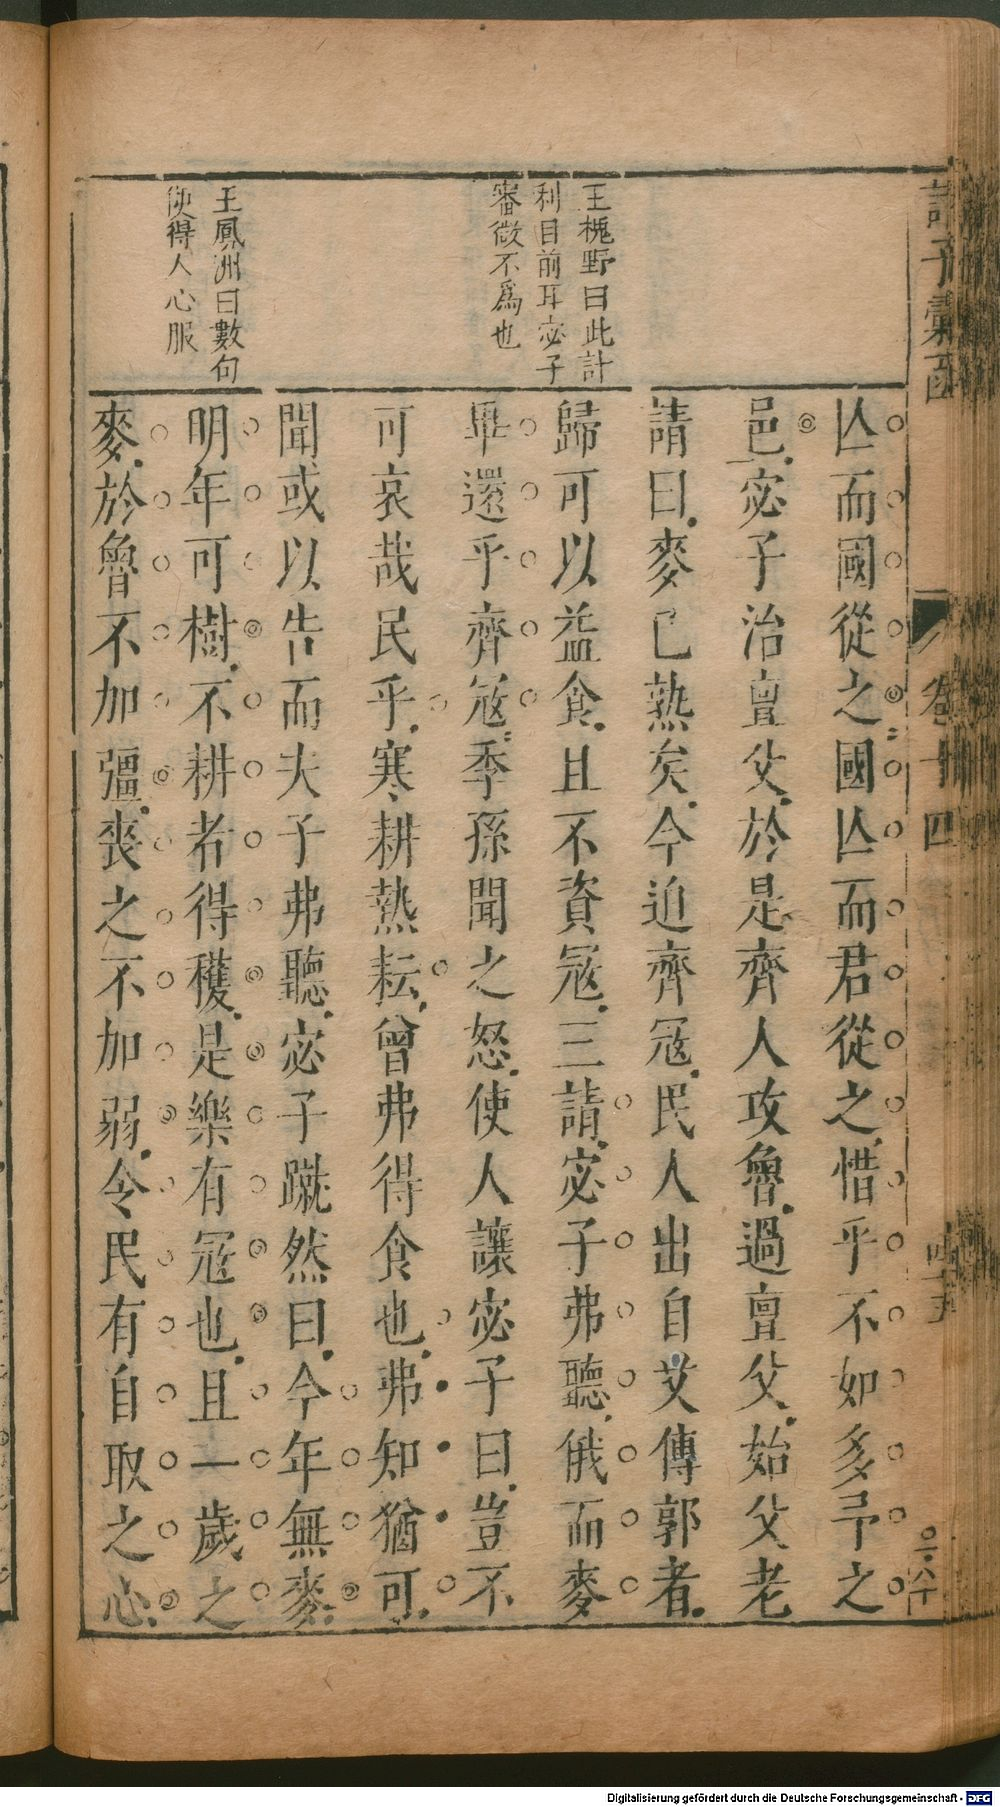 諸子彙函
卷十四
王槐野曰此計
利目前耳宓子
審微不爲也
王鳳洲曰數句
使得人心服
亾而國從之國亾而君從之惜乎不如多予之
邑宓子治亶父於是齊人攻魯過亶父始父老
請曰麥已熟矣今迫齊冦民人出自艾傅郭者
歸可以益食且不資冦三請宓子弗聽俄而麥
畢還乎齊冦季孫聞之怒使人讓宓子曰豈不
可哀哉民乎寒耕熱耘曾弗得食也弗知猶可
聞或以告而夫子弗聽宓子蹴然曰今年無麥
明年可樹不耕者得穫是樂有冦也且一歲之
麥於魯不加彊喪之不加弱令民有自取之心
Digitalisierung gefördert durch die Deutsche Forschungsgemeinschaft - DFG